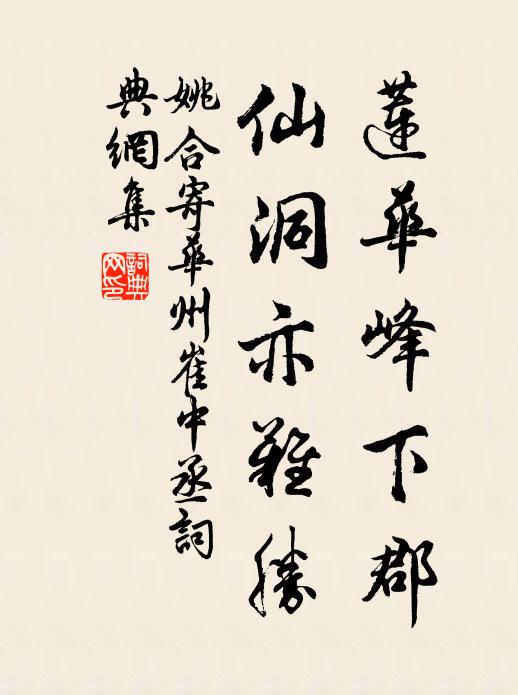 蓮華峰下郡
仙洞亦難勝
姚合寄華州崔中丞詞
典網集
詞典
网印